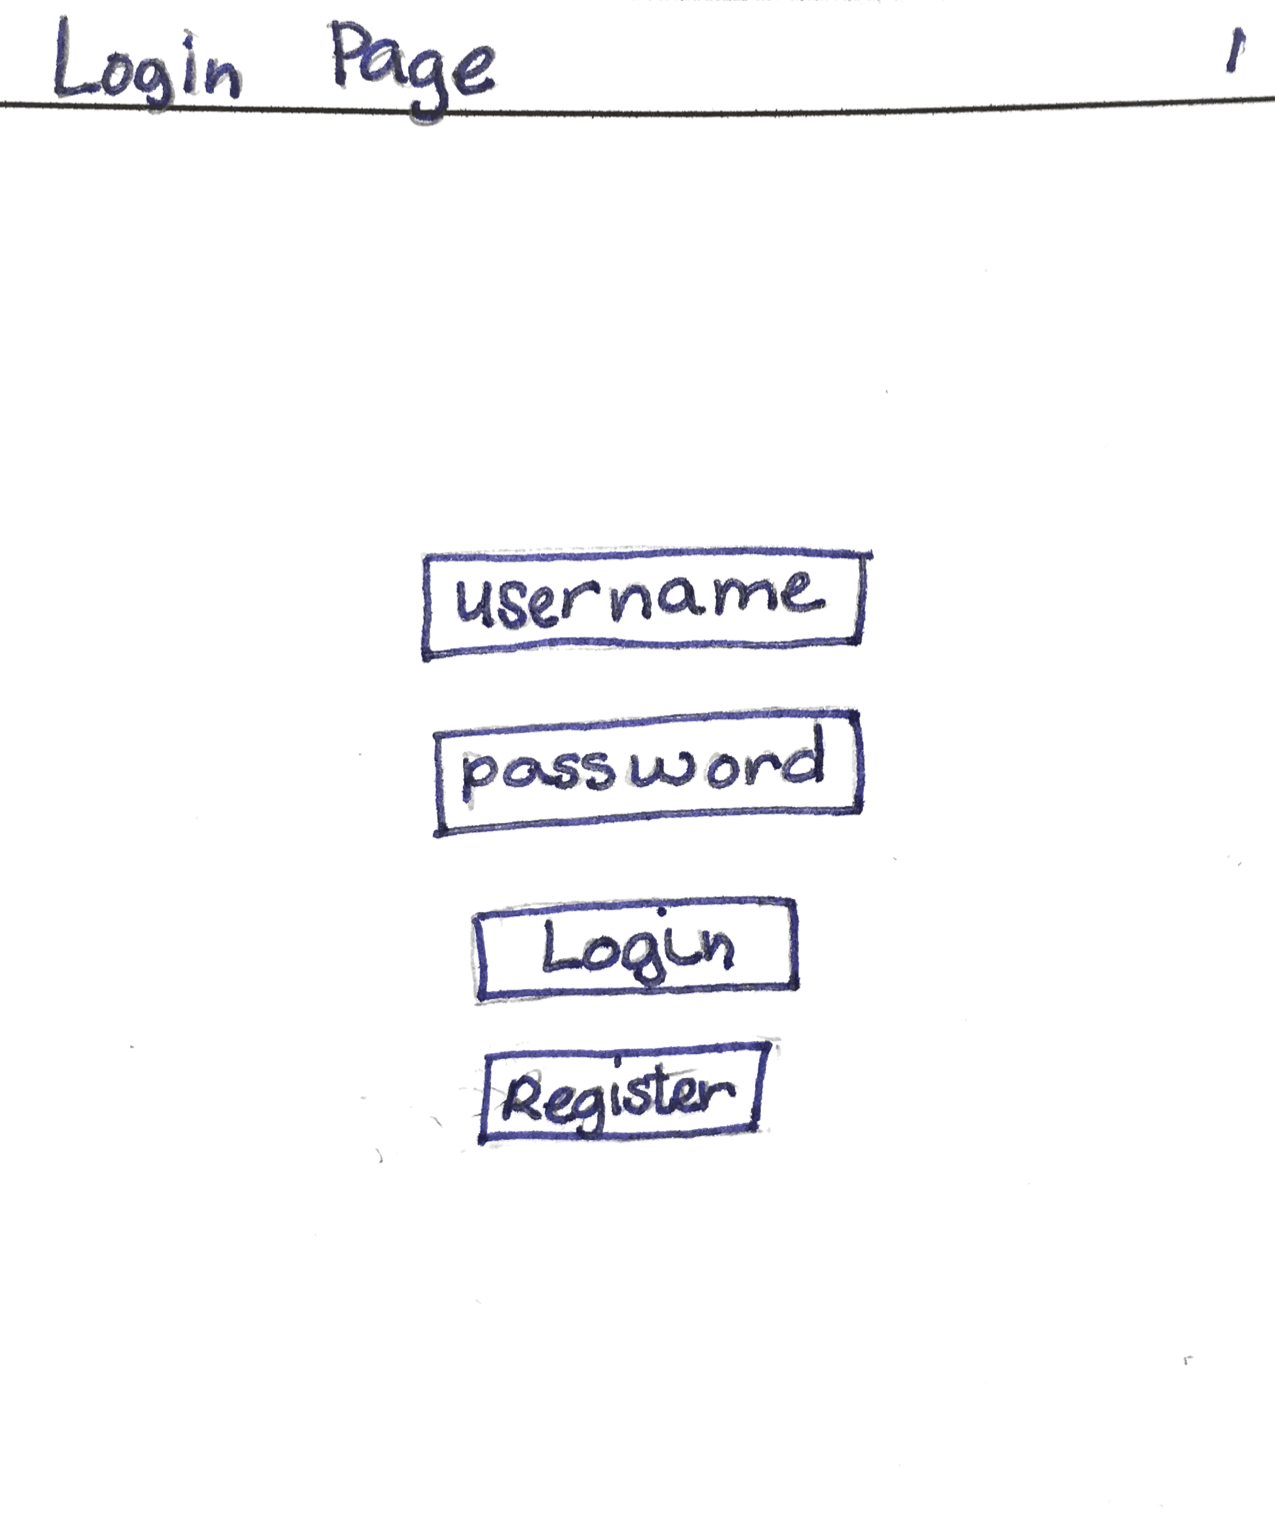 Login Page 1
username
password
Login
Register